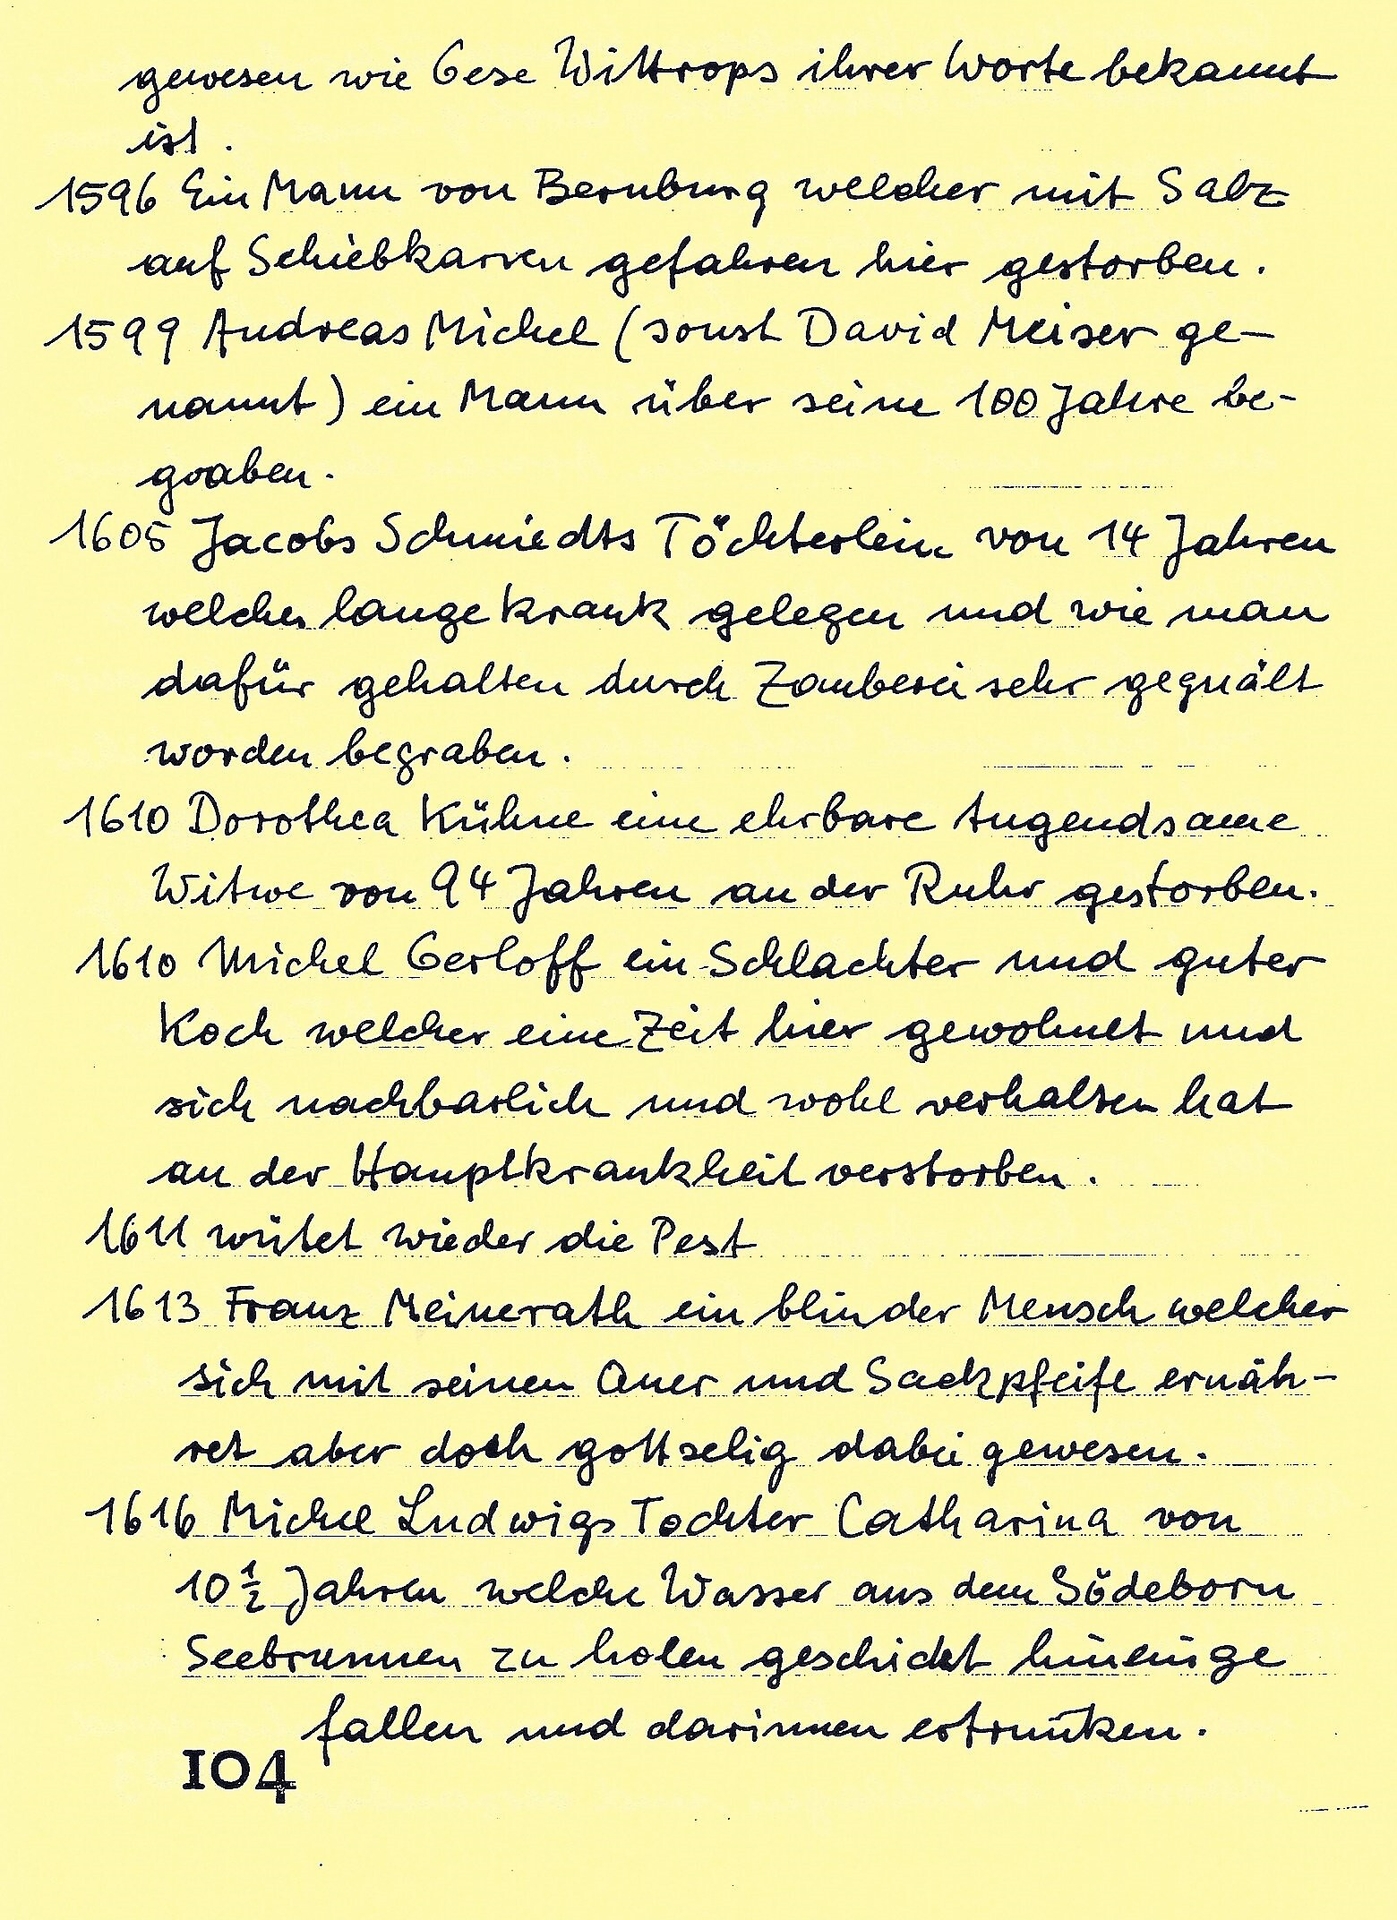 gewesen wie Gese Wittrops ihrer Worte bekannt
ist.
1596 Ein Mann von Bernburg welcher mit Salz
auf Schiebkarren gefahren hier gestorben.
1599 Andreas Michel (sonst David Meiser ge-
nannt) ein Mann über seine 100 Jahre be-
graben.
1605 Jacobs Schmiedts Töchterlein von 14 Jahren
welches lange krank gelegen und wie man
dafür gehalten durch Zauberei sehr gequält
worden begraben.
1610 Dorothea Kühne eine ehrbare tugendsame
Witwe von 94 Jahren an der Ruhr gestorben.
1610 Michel Gerloff ein Schlachter und guter
Koch welcher eine Zeit hier gewohnet und
sich nachbarlich und wohl verhalten hat
an der Hauptkrankheit verstorben.
1611 wütet wieder die Pest
1613 Franz Meinerath ein blinder Mensch welcher
sich mit seinen Quer und Sackpfeife ernäh-
ret aber doch gottselig dabei gewesen.
1616 Michel Ludwigs Tochter Catharina von
10 1/2 Jahren welche Wasser aus dem Södeborn
Seebrunnen zu holen geschickt hineinge
fallen und darinnen ertrunken.
104